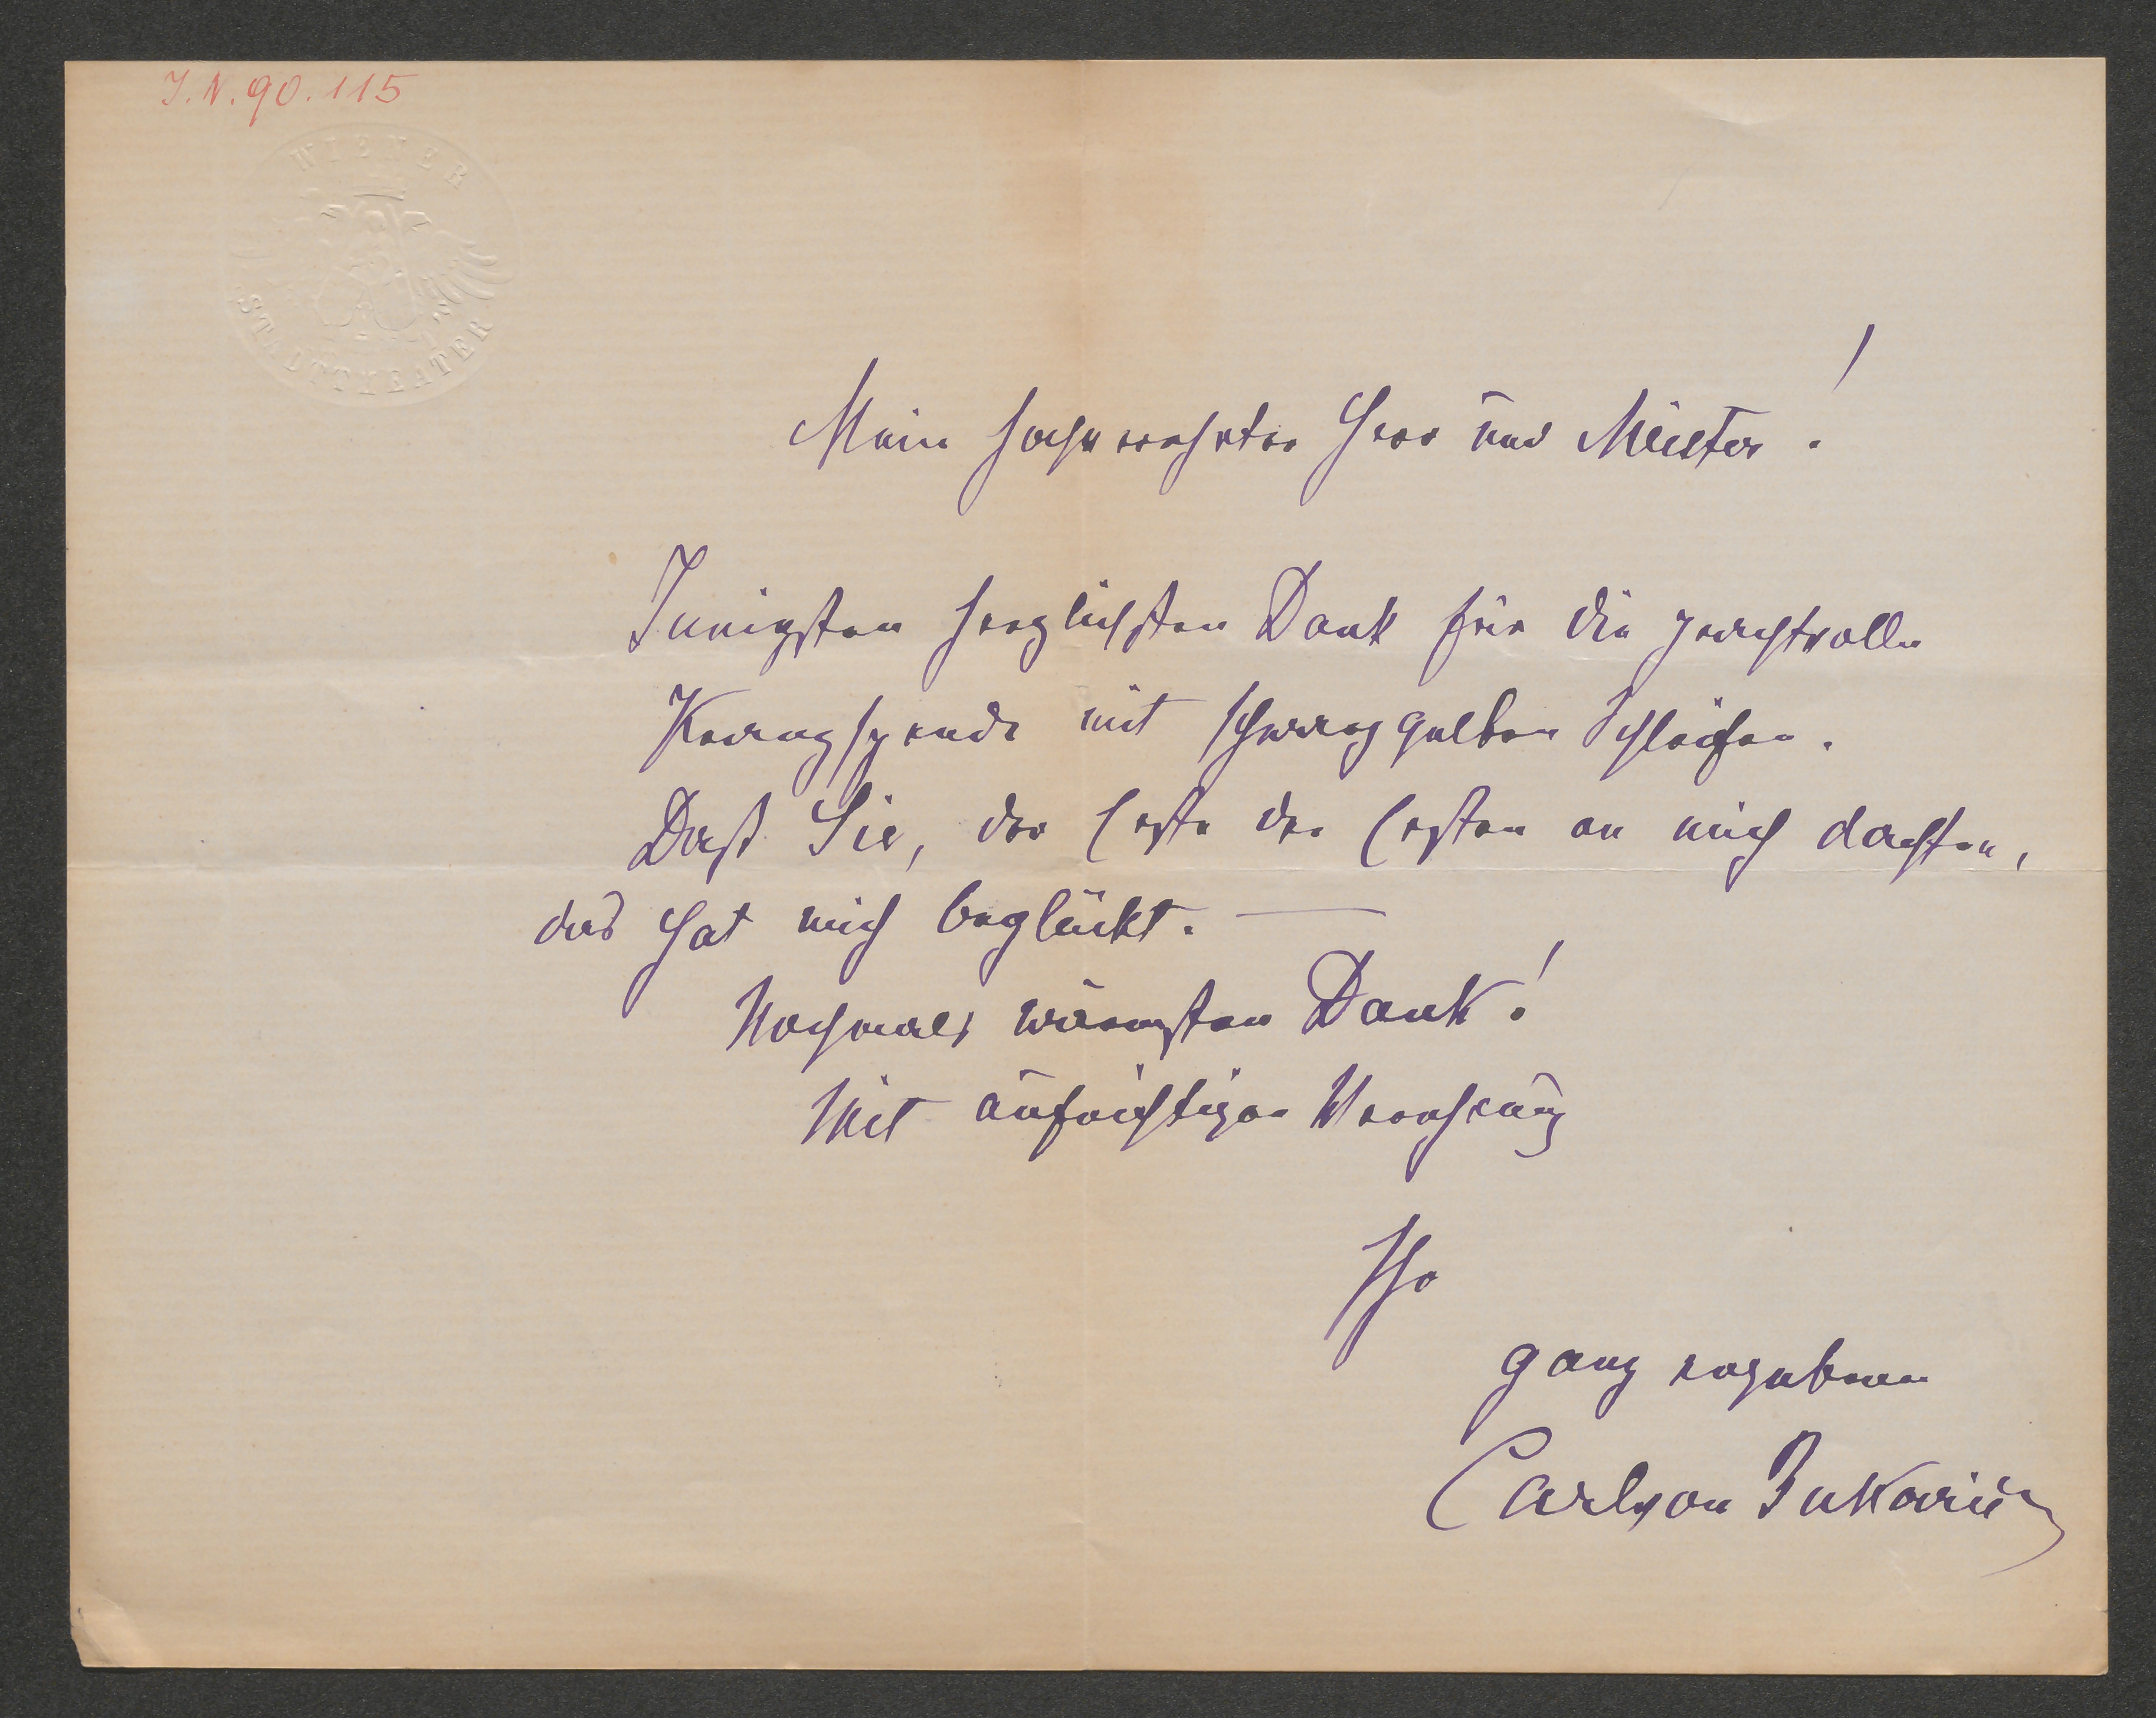 I.N. 90.115
WIENER
STADTTHEATER
Mein hochverehrter Herr und Meister!
Innigsten herzlichsten Dank für die prachtvolle
Kranzspende mit schwarzgelben Schleifen.
Daß Sie, der Erste der Ersten an mich dachten,
das hat mich beglückt. —
Nochmals wärmsten Dank!
Mit aufrichtiger Verehrung
Ihr
ganz ergebener
Carl von Bukovics